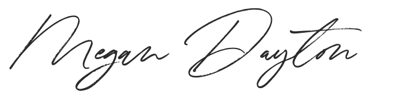 Megan Dayton